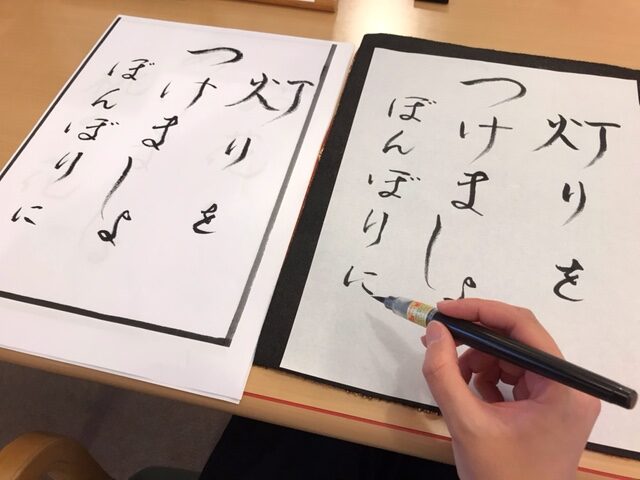 灯りを
つけましょ
ぼんぼりに
灯りを
つけましょ
ぼんぼりに